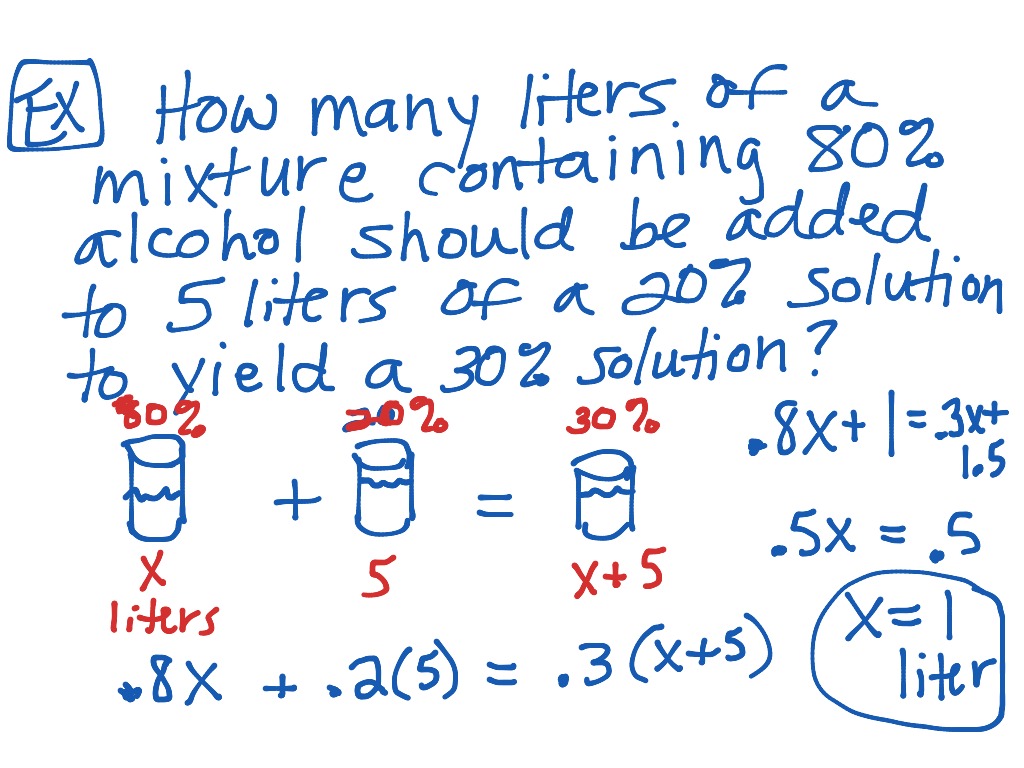 Ex How many liters of a
mixture containing 80%
alcohol should be added
to 5 liters of a 20% solution
to yield a 30% solution?
80% 20% 30%
+ =
x 5 x+5
liters
.8x + .2(5) = .3(x+5)
.8x+1=.3x+
1.5
.5x = .5
x=1
liter